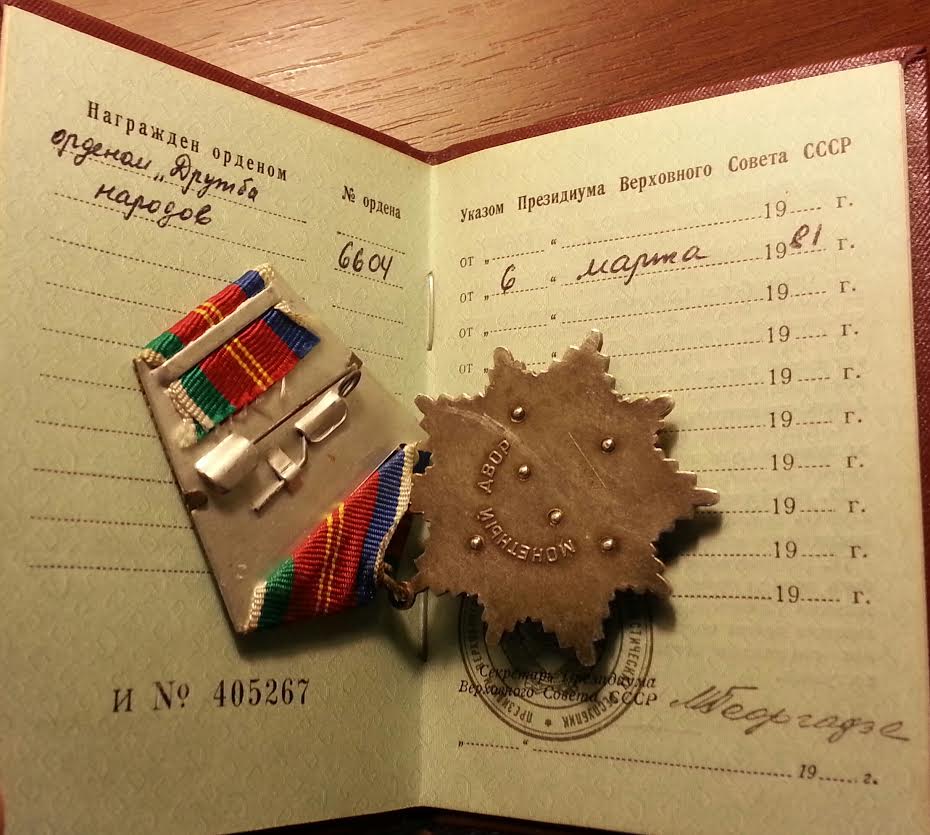 Награжден орденом
орденом „Дружба
народов
№ ордена
6604
И № 405267
Указом Президиума Верховного Совета СССР
от „ “ 19 г.
от „ 6 “ марта 19 81 г.
от „ “ 19 г.
от „ “ 19 г.
19 г.
19 г.
19 г.
19 г.
19 г.
19 г.
МОНЕТНЫЙ ДВОР
Секретарь Президиума
Верховного Совета СССР
МГеоргадзе
„ “ 19 г.